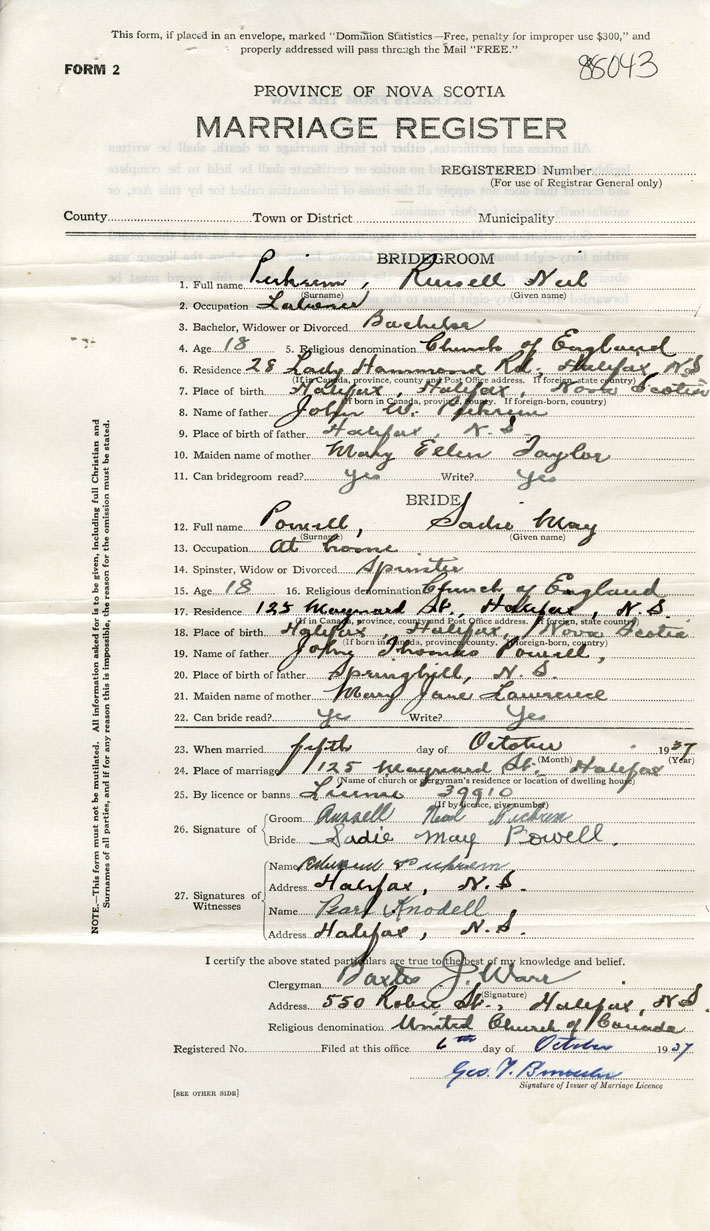 This form, if placed in an envelope, marked "Dominion Statistics—Free, penalty for improper use $300," and
properly addressed will pass through the Mail "FREE."
FORM 2
88043
PROVINCE OF NOVA SCOTIA
MARRIAGE REGISTER
REGISTERED Number
(For use of Registrar General only)
County Town or District Municipality
BRIDEGROOM
1. Full name , Russell Neil
(Surname) (Given name)
2. Occupation Laborer
3. Bachelor, Widower or Divorced Bachelor
4. Age 18 5. Religious denomination Church of England
6. Residence 28 Lady Hammond Rd., Halifax, N.S.
(If in Canada, province, county and Post Office address. If foreign, state country)
7. Place of birth Halifax, Halifax, Nova Scotia
(If born in Canada, province, county. If foreign-born, country)
8. Name of father John W.
9. Place of birth of father Halifax, N.S.
10. Maiden name of mother Mary Ellen Taylor
11. Can bridegroom read? yes Write? yes
BRIDE
12. Full name Powell, Sadie May
(Surname) (Given name)
13. Occupation At home
14. Spinster, Widow or Divorced Spinster
15. Age 18 16. Religious denomination Church of England
17. Residence 125 Maynard St., Halifax, N.S.
(If in Canada, province, county and Post Office address. If foreign, state country)
18. Place of birth Halifax, Halifax, Nova Scotia
(If born in Canada, province, county. If foreign-born, country)
19. Name of father John Thomas Powell,
20. Place of birth of father Springhill, N.S.
21. Maiden name of mother Mary Jane Lawrence
22. Can bride read? Yes Write? Yes
23. When married fifth day of October 1937
(Month) (Year)
24. Place of marriage 125 Maynard St. Halifax
(Name of church or clergyman's residence or location of dwelling house)
25. By licence or banns License 39910
(If by licence, give number)
26. Signature of
Groom Russell Neil
Bride Sadie May Powell.
27. Signatures of Witnesses
Name
Address Halifax, N.S.
Name Pearl Knodell
Address Halifax, N.S.
I certify the above stated particulars are true to the best of my knowledge and belief.
Clergyman Baxter J. Warr
(Signature)
Address 550 Robie St., Halifax, N.S.
Religious denomination United Church of Canada
Registered No. Filed at this office 6th day of October 1937
Geo. T.
Signature of Issuer of Marriage Licence
[SEE OTHER SIDE]
NOTE.—This form must not be mutilated. All information asked for is to be given, including full Christian and
Surnames of all parties, and if for any reason this is impossible, the reason for the omission must be stated.